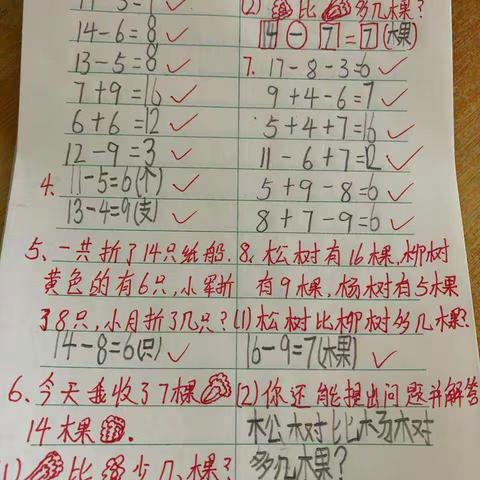 14-6=8
13-5=8
7+9=16
6+6=12
12-9=3
4. 11-5=6(个)
13-4=9(支)
5、一共折了14只纸船.
黄色的有6只,小军折
了8只,小月折了几只?
14-8=6(只)
6、今天我收了7棵
14棵.
(1) 比 少几棵?
(2) 比 多几棵?
14-7=7(棵)
7. 17-8-3=6
9+4-6=7
5+4+7=16
11-6+7=12
5+9-8=6
8+7-9=6
8、松树有16棵,柳树
有9棵,杨树有5棵
(1)松树比柳树多几棵?
16-9=7(棵)
(2)你还能提出问题并解答
松树比杨树
多几棵?